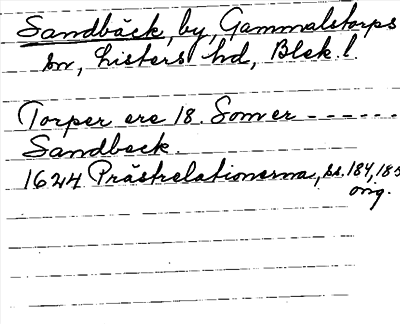 Sandbäck, by, Gammalstorps
sn, Listers hd, Blek. l.
Torper ere 18. Som er ------
Sandbeck.
1624 Prästrelationerna, ss. 184, 185
orig.